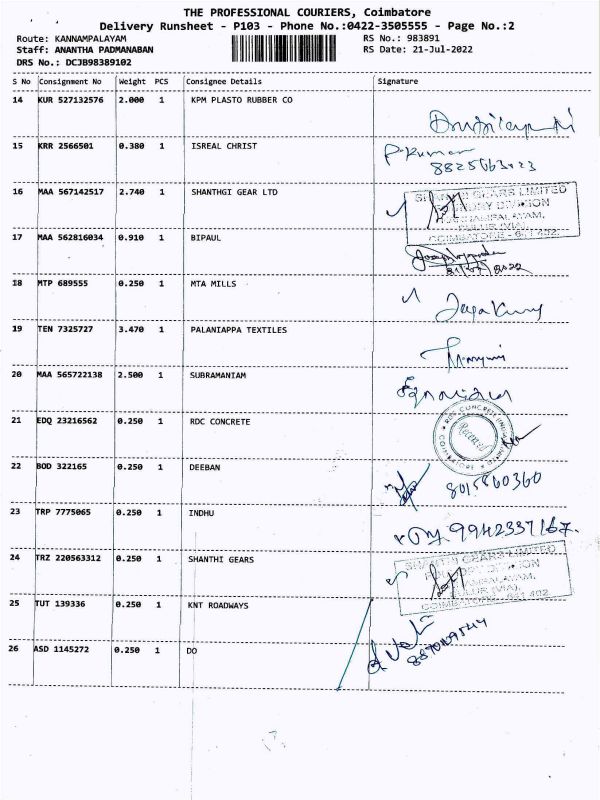 THE PROFESSIONAL COURIERS, Coimbatore
Delivery Runsheet - P103 - Phone No.:0422-3505555 - Page No.:2
Route: KANNAMPALAYAM RS No.: 983891
Staff: ANANTHA PADMANABAN RS Date: 21-Jul-2022
DRS No.: DCJB98389102
S No Consignment No Weight PCS Consignee Details Signature
14 KUR 527132576 2.000 1 KPM PLASTO RUBBER CO
15 KRR 2566501 0.380 1 ISREAL CHRIST P.Kumar
16 MAA 567142517 2.740 1 SHANTHGI GEAR LTD
SHANTHI GEARS LIMITED
FOUNDRY DIVISION
KANNAMPALAYAM,
SULUR (VIA),
COIMBATORE - 641 402.
17 MAA 562816034 0.910 1 BIPAUL
21/07/2022
18 MTP 689555 0.250 1 MTA MILLS JayaKumar
19 TEN 7325727 3.470 1 PALANIAPPA TEXTILES
20 MAA 565722138 2.500 1 SUBRAMANIAM
21 EDQ 23216562 0.250 1 RDC CONCRETE
RDC CONCRETE
Received
COIMBATORE
22 BOD 322165 0.250 1 DEEBAN 8015860360
23 TRP 7775065 0.250 1 INDHU 9942337167.
24 TRZ 220563312 0.250 1 SHANTHI GEARS
SHANTHI GEARS LIMITED
FOUNDRY DIVISION
KANNAMPALAYAM,
SULUR (VIA),
COIMBATORE - 641 402
25 TUT 139336 0.250 1 KNT ROADWAYS
26 ASD 1145272 0.250 1 DO